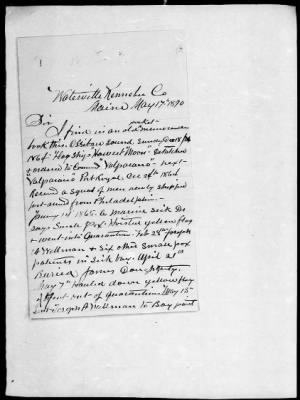 Waterville Kennebec Co
Maine May 17th 1890
Sir
pocket
I find in an old memoran
book this. Ossibaw Sound, Sunday Dec 18/64
1864. Flag Ship Harvest Moon. detached
& ordered to Command "Valparaiso" next
"Valparaiso" Port Royal, Dec 20th 1864
Recvd a squad of men newly shipped
just arrived from Philadelphia
Jany 14 1865. A marine sick Dr
says Small Pox. Hoisted yellow flag
& went into Quarantine. Feb 28th Joseph
A Wellman & Six other Small pox
patients in sick bay. April 21st
Buried James Dougherty.
May 7th hauled down yellow flag
& went out of quarantine. May 15
Sent Joseph A Wellman to Bay point